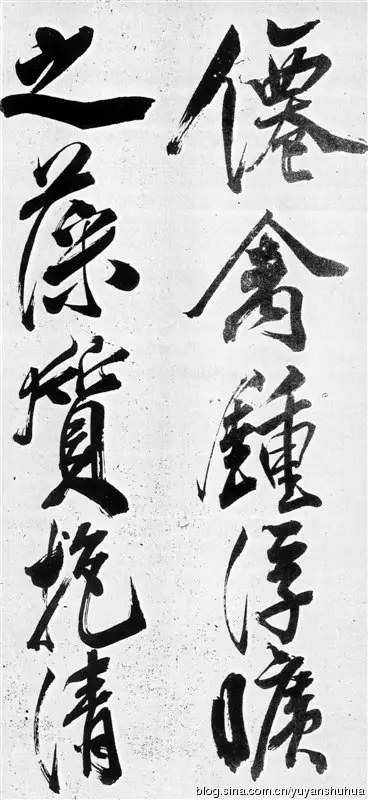 僊禽鍾浮曠
之藻質抱清
blog.sina.com.cn/yuyanshuhua